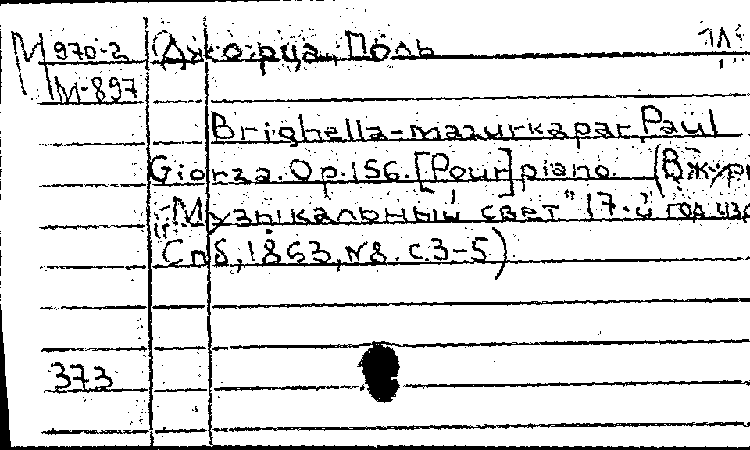 М 970-2 Джорца, Поль
М-897
Brighella-mazurka par Paul
Giorza. Op. 156. [Pour] piano. (В журн
"Музыкальный свет" 17-й год изд
Спб, 1863, N8. с. 3-5)
373